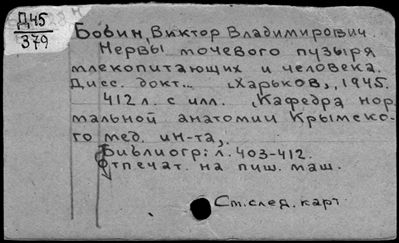 Д45
379
Бобин, Виктор Владимирович.
Нервы мочевого пузыря
млекопитающих и человека.
Дисс. докт... Харьков, 1945.
412 л. с илл. (Кафедра нор-
мальной анатомии Крымско-
го мед. ин-та).
Библиогр: л. 403-412.
Отпечат. на пиш. маш.
См. след. карт.